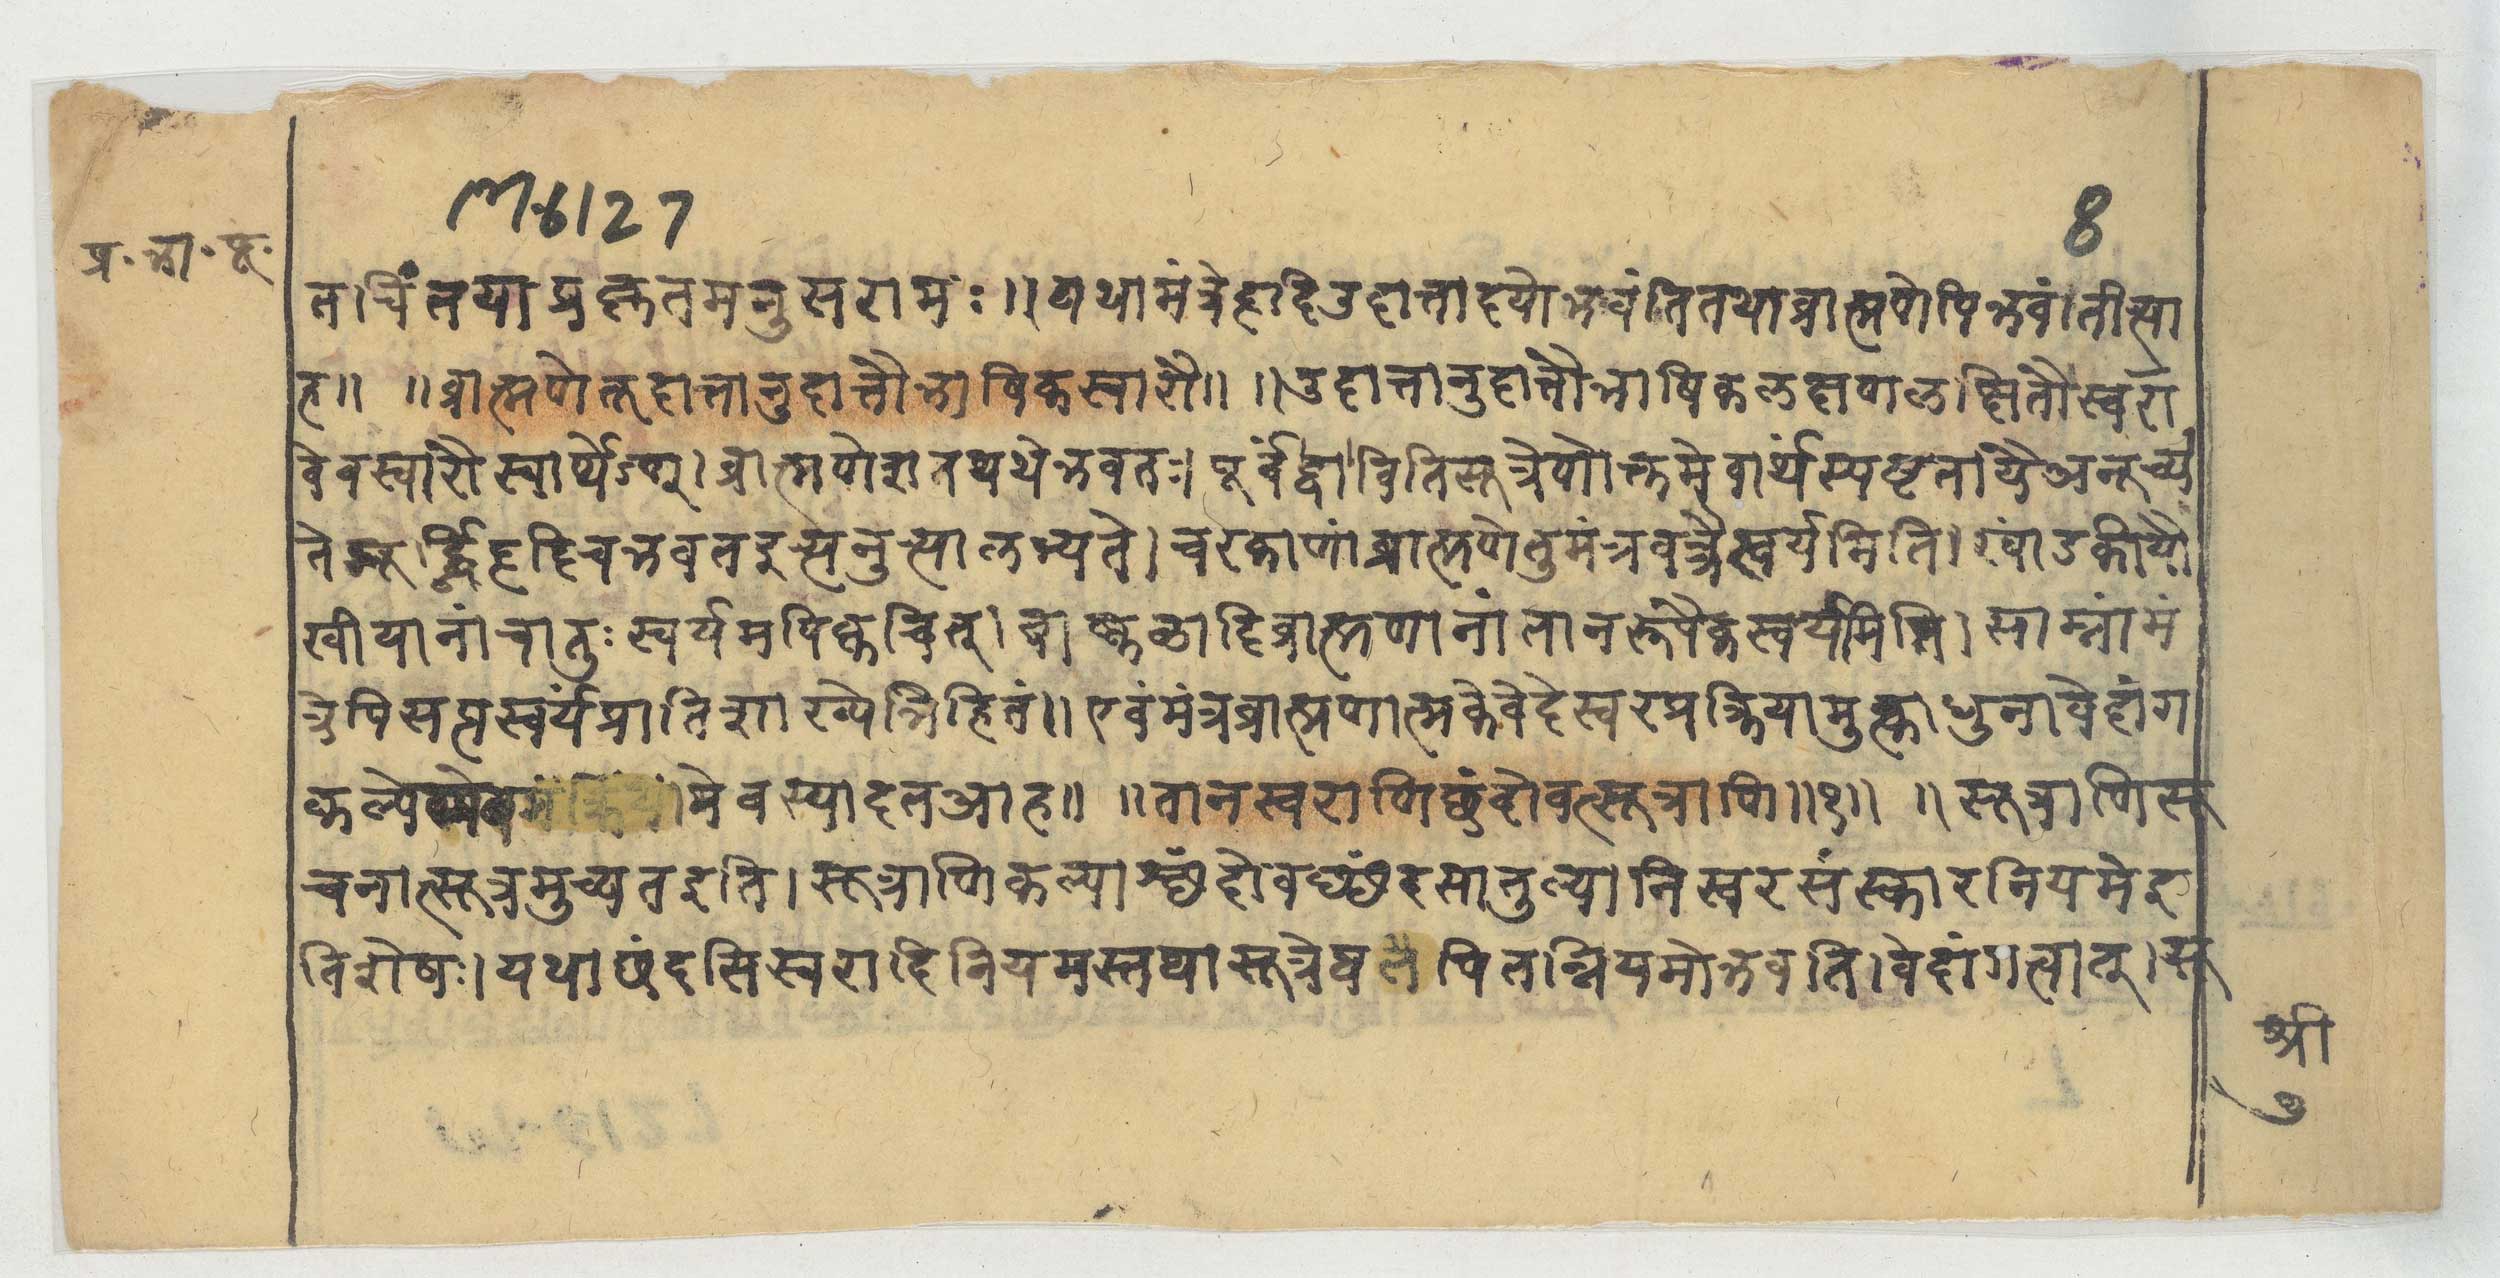 M-6127
8
प्र. भा. सू.
त। चिंतया प्रकृतमनुसरामः॥ यथा मंत्रे हादि उदात्तादयो भवंति तथा ब्राह्मणेपि भवंतीत्या
ह॥ ॥ब्राह्मणे तूदात्तानुदात्तौ भाषिकस्वारौ॥ ॥उदात्तानुदात्तौ भाषिकलक्षणलक्षितौ स्वरा
वेवस्वारौ स्वार्थेऽण्। ब्राह्मणे शतपथे भवतः। पूर्वं द्वाविति सूत्रेणोक्तमेवार्थं स्पष्टतायै अनूच्य
ते चरकाणां ब्राह्मणे तु मंत्रवत्रैस्वर्यमिति। खांडिकीयौ
खीयानां चातुः स्वर्यमपि क्वचित्। बाष्कळादि ब्राह्मणानां तानरूपैकस्वर्यमिति। साम्नां मं
त्रेपि सप्तस्वर्यं प्रातिशाख्येभिहितं॥ एवं मंत्रब्राह्मणात्मके वेदे स्वरप्रक्रियामुक्त्वाधुना वेदांग
कल्पे मेव स्यादत आह॥ ॥तानस्वराणि छंदोवत्सूत्राणि॥१॥ ॥सूत्राणि सू
चनात्सूत्रमुच्यत इति। सूत्राणि कल्पाश्छंदोवच्छंदसातुल्यानि स्वरसंस्कारनियमे इ
ति शेषः। यथा छंदसि स्वरादिनियमस्तथा सूत्रेष्वपि तन्नियमो भवति। वेदांगत्वात्। सू
श्री
७